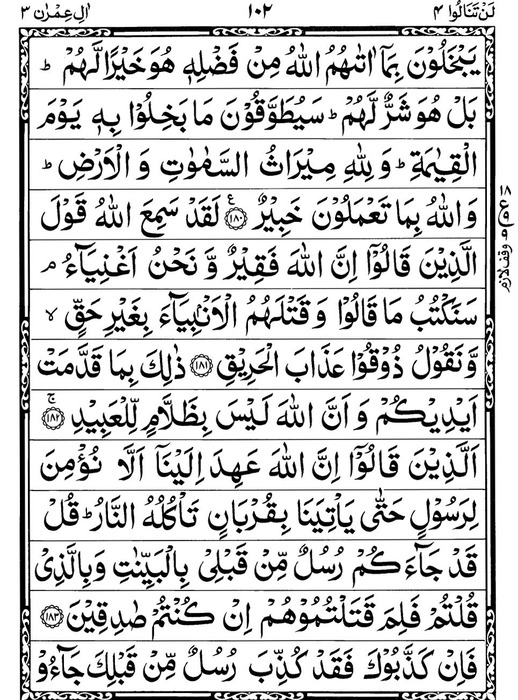 لَنْ تَنَالُوا ٤ ١٠٢ اٰلِ عِمْرٰن ٣
يَبْخَلُوْنَ بِمَآ اٰتٰىهُمُ اللّٰهُ مِنْ فَضْلِهٖ هُوَ خَيْرًا لَّهُمْ ؕ
بَلْ هُوَ شَرٌّ لَّهُمْ ؕ سَيُطَوَّقُوْنَ مَا بَخِلُوْا بِهٖ يَوْمَ
الْقِيٰمَةِ ؕ وَ لِلّٰهِ مِيْرَاثُ السَّمٰوٰتِ وَ الْاَرْضِ ؕ
وَ اللّٰهُ بِمَا تَعْمَلُوْنَ خَبِيْرٌ ﴿١٨٠﴾ ع لَقَدْ سَمِعَ اللّٰهُ قَوْلَ
الَّذِيْنَ قَالُوْٓا اِنَّ اللّٰهَ فَقِيْرٌ وَّ نَحْنُ اَغْنِيَآءُ ۘ
سَنَكْتُبُ مَا قَالُوْا وَ قَتْلَهُمُ الْاَنْۢبِيَآءَ بِغَيْرِ حَقٍّ ۙ
وَّ نَقُوْلُ ذُوْقُوْا عَذَابَ الْحَرِيْقِ ﴿١٨١﴾ ذٰلِكَ بِمَا قَدَّمَتْ
اَيْدِيْكُمْ وَ اَنَّ اللّٰهَ لَيْسَ بِظَلَّامٍ لِّلْعَبِيْدِ ﴿١٨٢﴾ ۚ
اَلَّذِيْنَ قَالُوْٓا اِنَّ اللّٰهَ عَهِدَ اِلَيْنَآ اَلَّا نُؤْمِنَ
لِرَسُوْلٍ حَتّٰى يَاْتِيَنَا بِقُرْبَانٍ تَاْكُلُهُ النَّارُ ؕ قُلْ
قَدْ جَآءَكُمْ رُسُلٌ مِّنْ قَبْلِيْ بِالْبَيِّنٰتِ وَ بِالَّذِيْ
قُلْتُمْ فَلِمَ قَتَلْتُمُوْهُمْ اِنْ كُنْتُمْ صٰدِقِيْنَ ﴿١٨٣﴾
فَاِنْ كَذَّبُوْكَ فَقَدْ كُذِّبَ رُسُلٌ مِّنْ قَبْلِكَ جَآءُوْ
١٨
ع
٩
وقف لازم